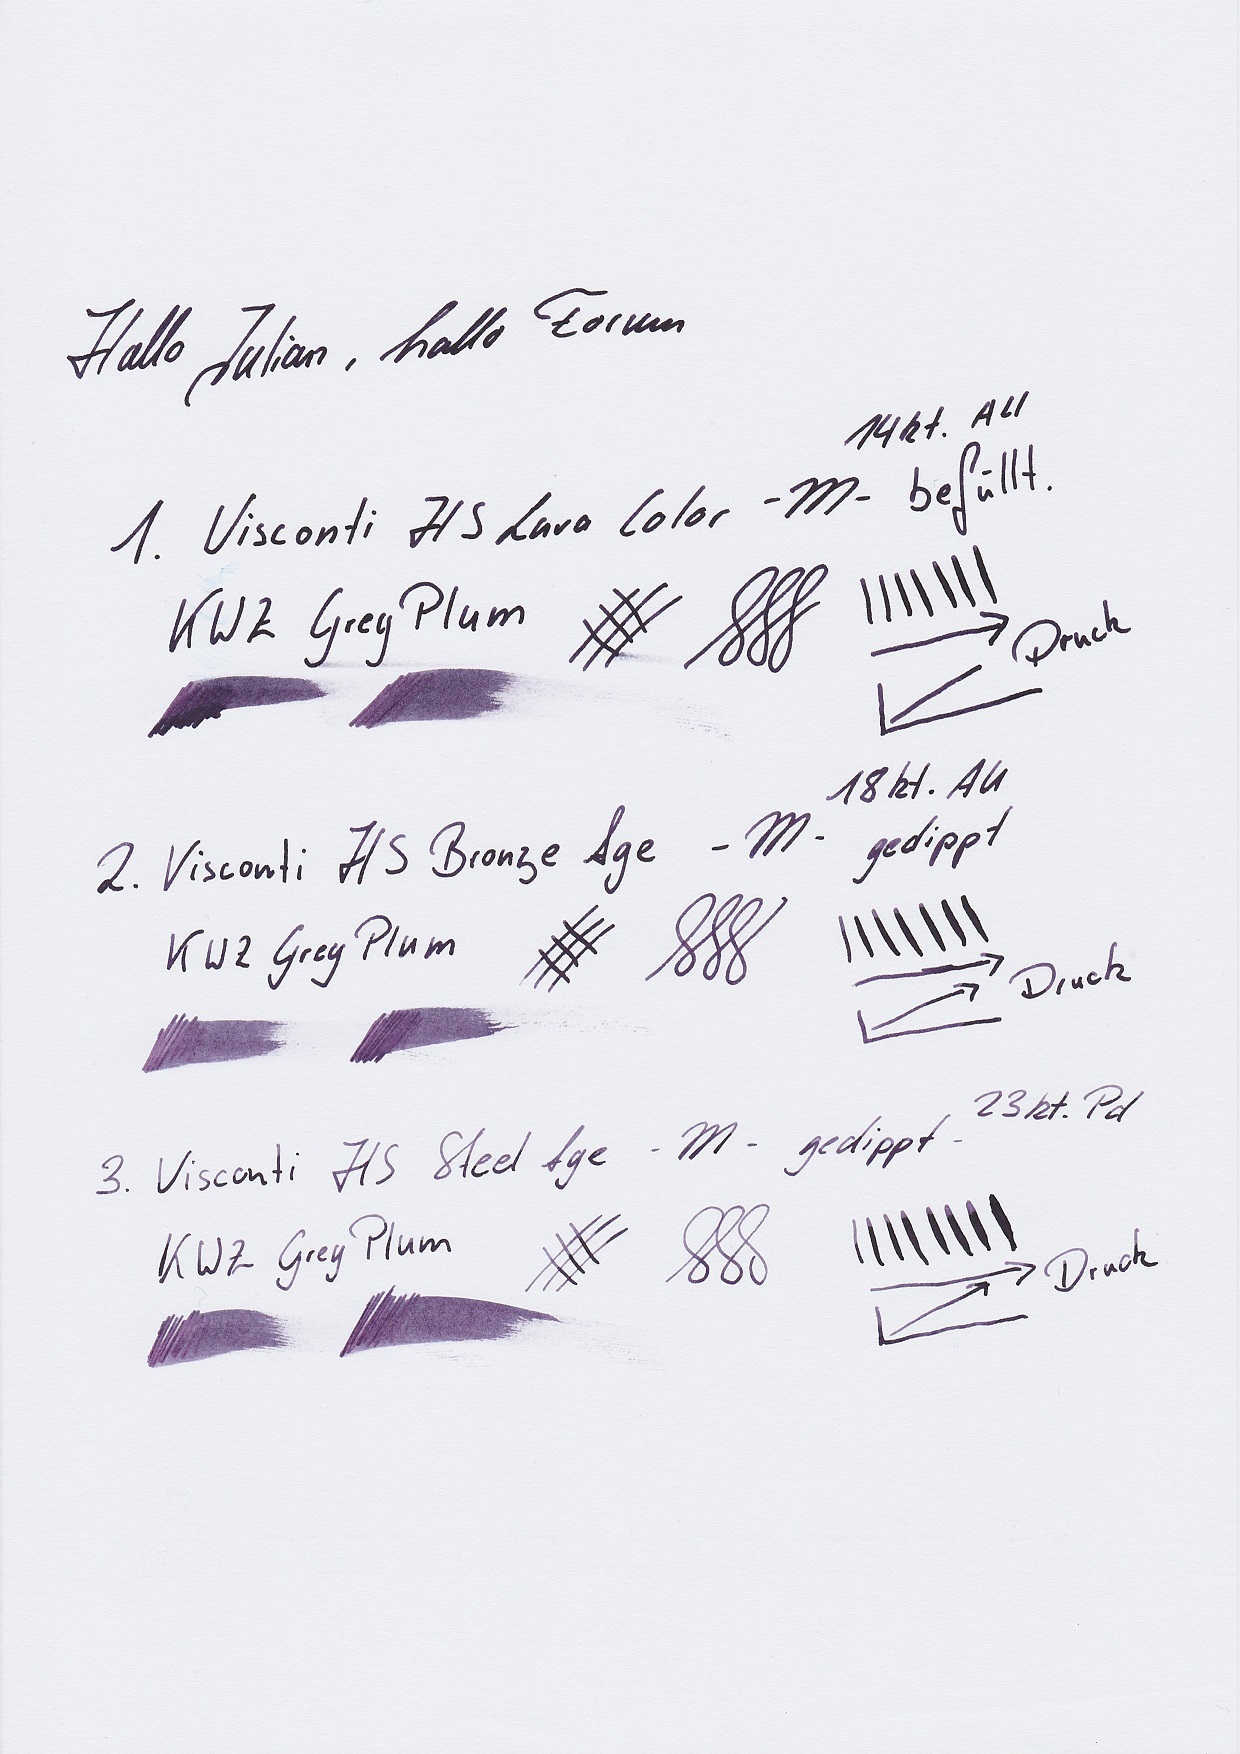 Hallo Julian, hallo Forum
14kt. Au
1. Visconti HS Lava Color -M- befüllt.
KWZ Grey Plum
Druck
18kt. Au
2. Visconti HS Bronze Age -M- gedippt
KWZ Grey Plum
Druck
23kt. Pd
3. Visconti HS Steel Age -M- gedippt-
KWZ Grey Plum
Druck